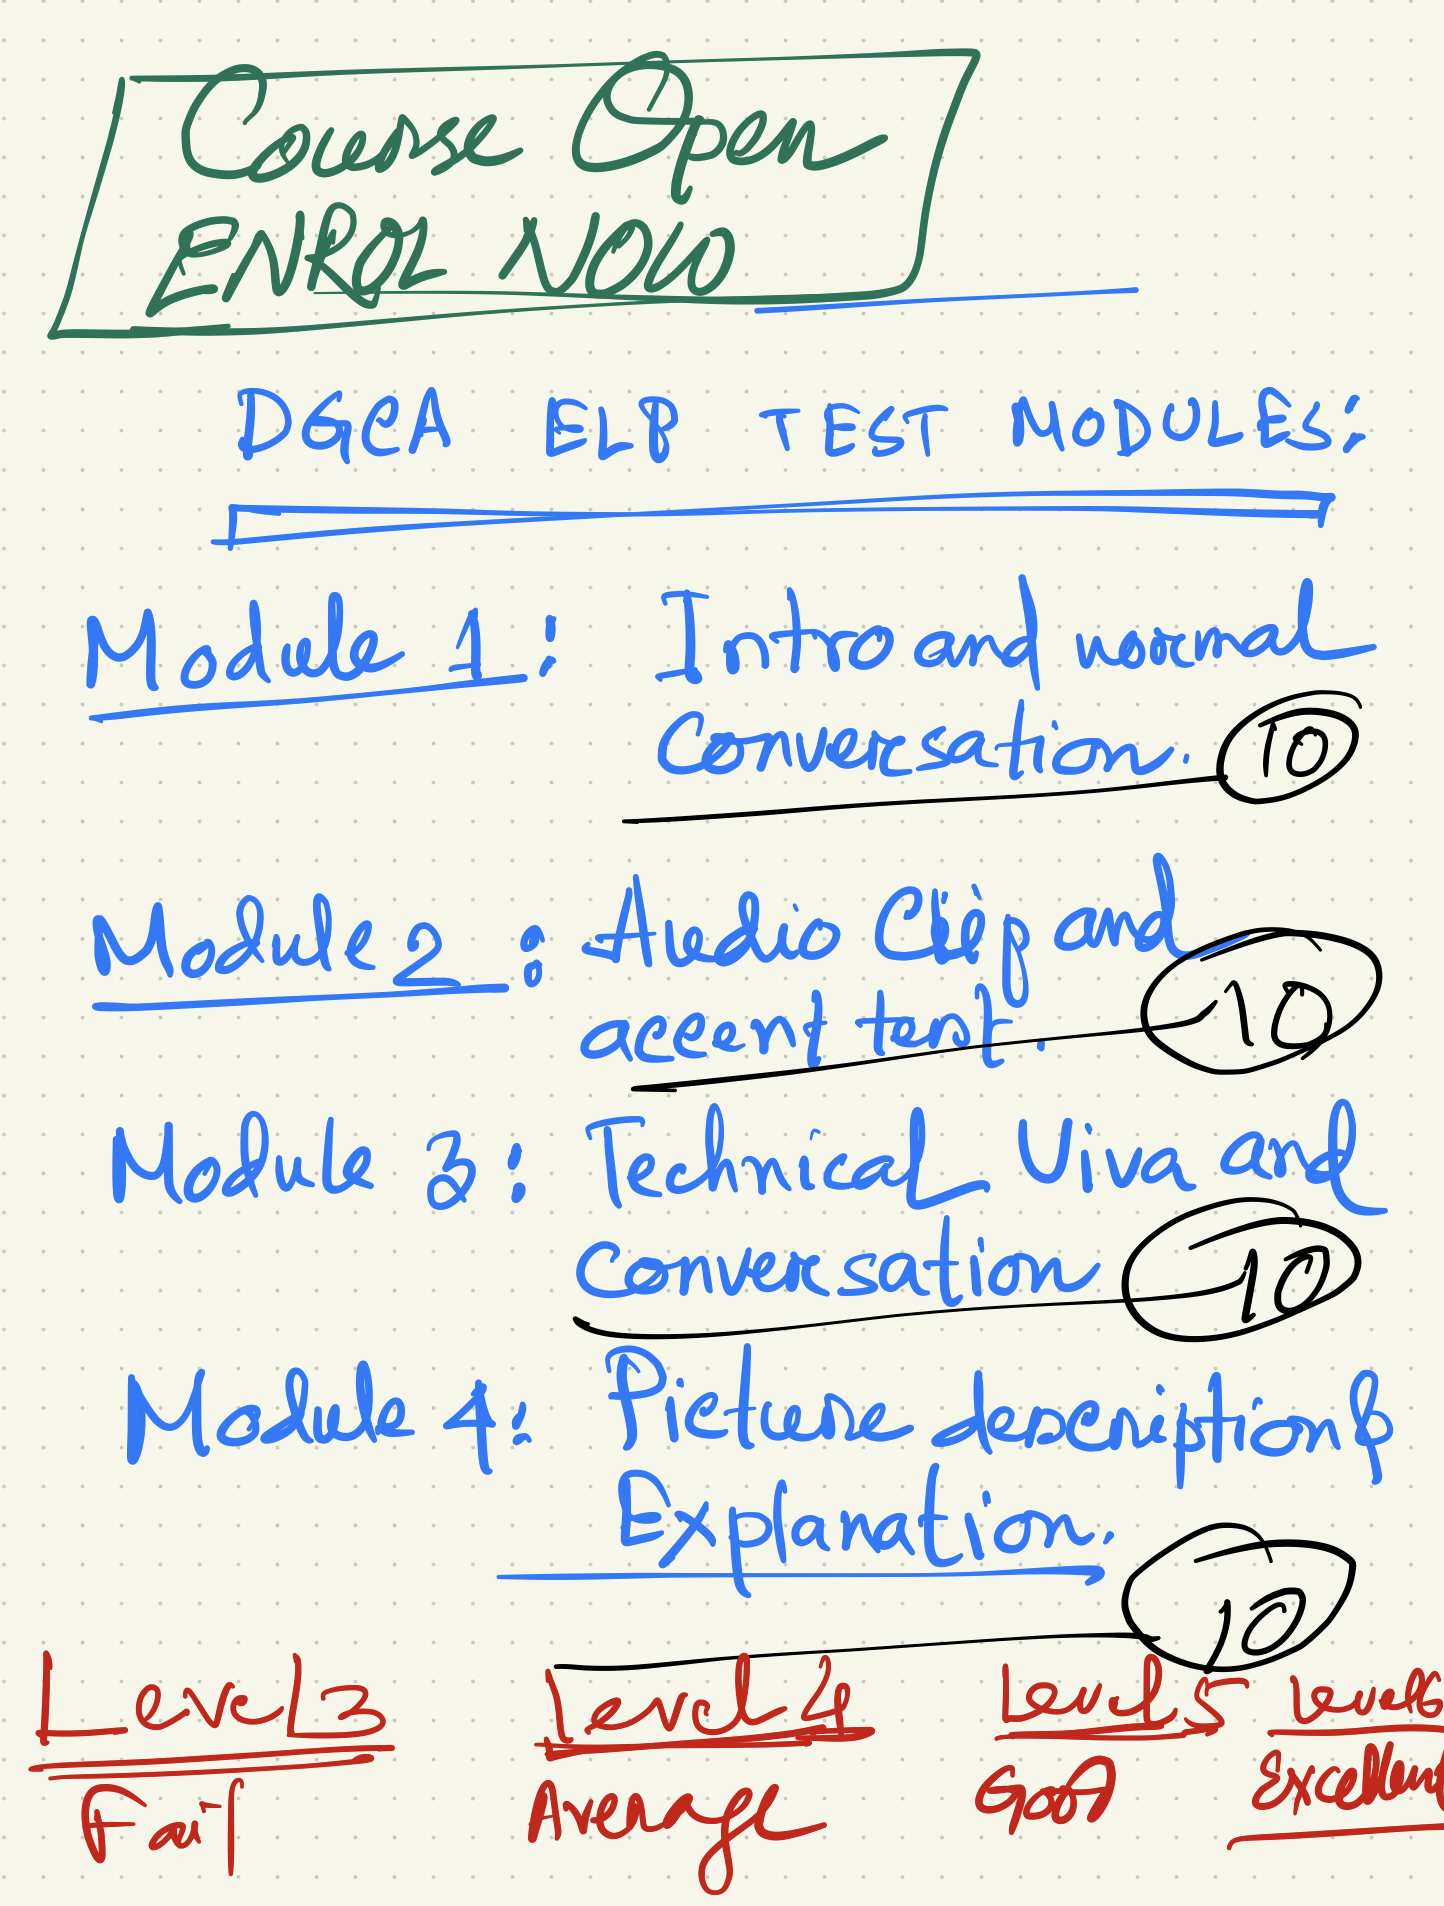 Course Open
ENROL NOW
DGCA ELP TEST MODULES:
Module 1: Intro and normal
Conversation. 10
Module 2: Audio Clip and
accent test. 10
Module 3: Technical Viva and
Conversation 10
Module 4: Picture description &
Explanation. 10
Level 3 Level 4 Level 5 Level 6
Fail Average Good Excellent